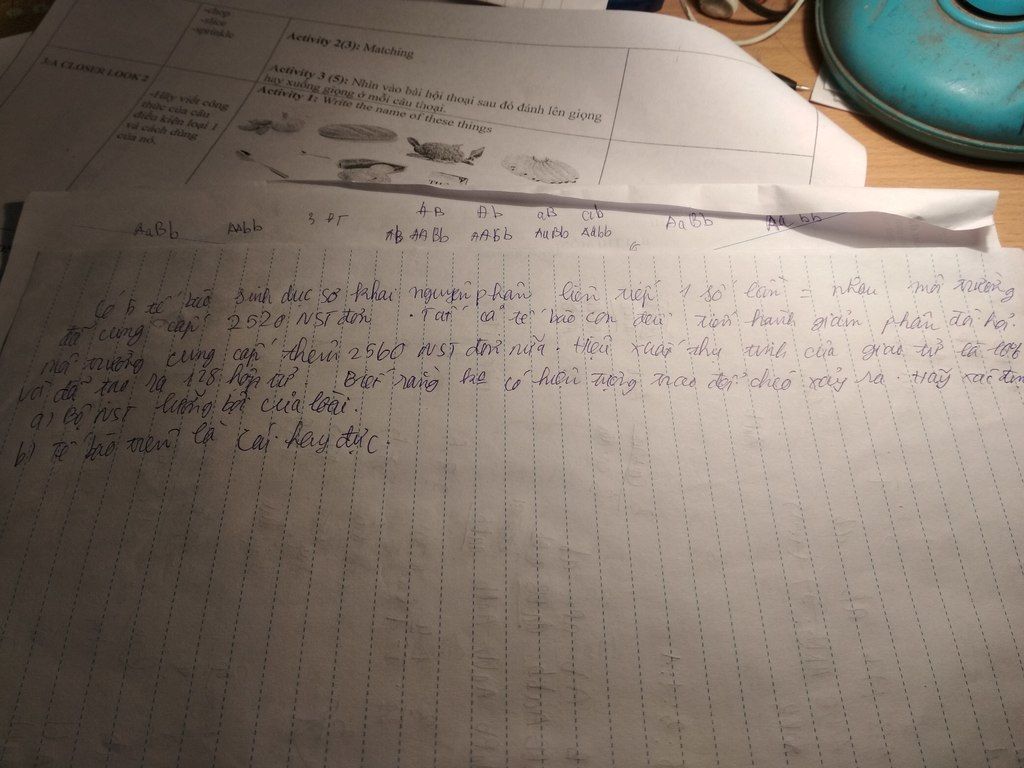 -chop
-slice
-sprinkle
Activity 2(3): Matching
3.A CLOSER LOOK 2
-Hãy viết công
thức của câu
điều kiện loại 1
và cách dùng
của nó.
Activity 3 (5): Nhìn vào bài hội thoại sau đó đánh lên giọng
hay xuống giọng ở mỗi câu thoại.
Activity 1: Write the name of these things
AB Ab aB ab
AaBb AAbb 3 PT AB AABB AABb AaBb AaBb Aabb
Có 5 tế bào sinh dục sơ khai nguyên phân liên tiếp 1 số lần = nhau môi trường
đã cung cấp 2520 NST đơn. Tất cả tế bào con đều tiến hành giảm phân đòi hỏi
môi trường cung cấp thêm 2560 NST đơn nữa. Hiệu suất thụ tinh của giao tử là 10%
và đã tạo ra 128 hợp tử. Biết rằng ko có hiện tượng trao đổi chéo xảy ra. Hãy xác định
a) Bộ NST lưỡng bội của loài.
b) tế bào trên là cái hay đực.